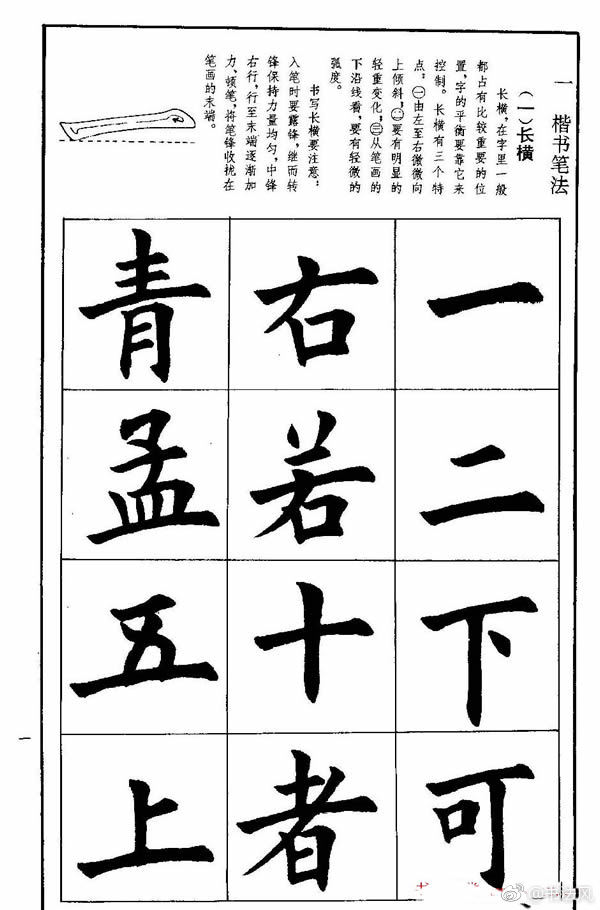 一 楷书笔法
（一）长横
长横，在字里一般
都占有比较重要的位
置，字的平衡要靠它来
控制。长横有三个特
点：㊀由左至右微微向
上倾斜；㊁要有明显的
轻重变化；㊂从笔画的
下沿线看，要有轻微的
弧度。
书写长横要注意：
入笔时要露锋，继而转
锋保持力量均匀，中锋
右行，行至末端逐渐加
力、顿笔，将笔锋收拢在
笔画的末端。
一
二
下
可
右
若
十
者
青
孟
五
上
一
@书法风